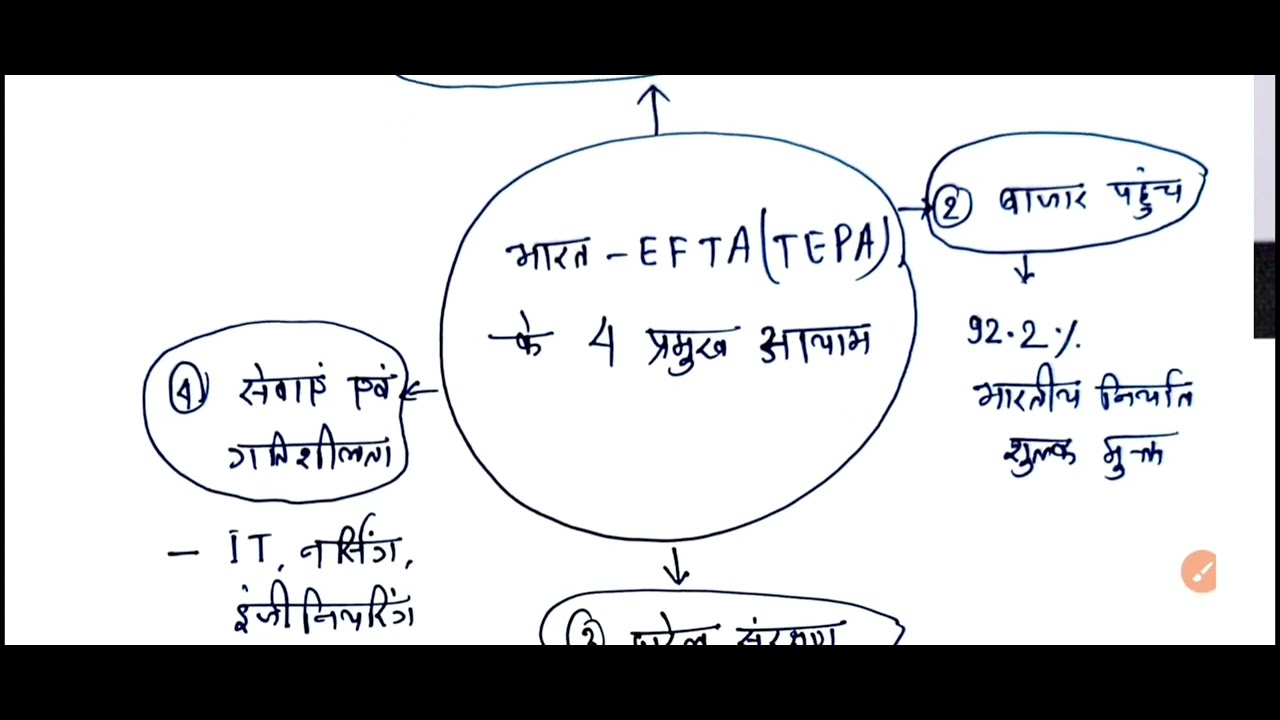 भारत - EFTA (TEPA)
के 4 प्रमुख आयाम
② बाजार पहुंच
92.2%
भारतीय निर्यात
शुल्क मुक्त
④ सेवाएं एवं
गतिशीलता
- IT, नर्सिंग,
इंजीनियरिंग
③ घरेलू संरक्षण